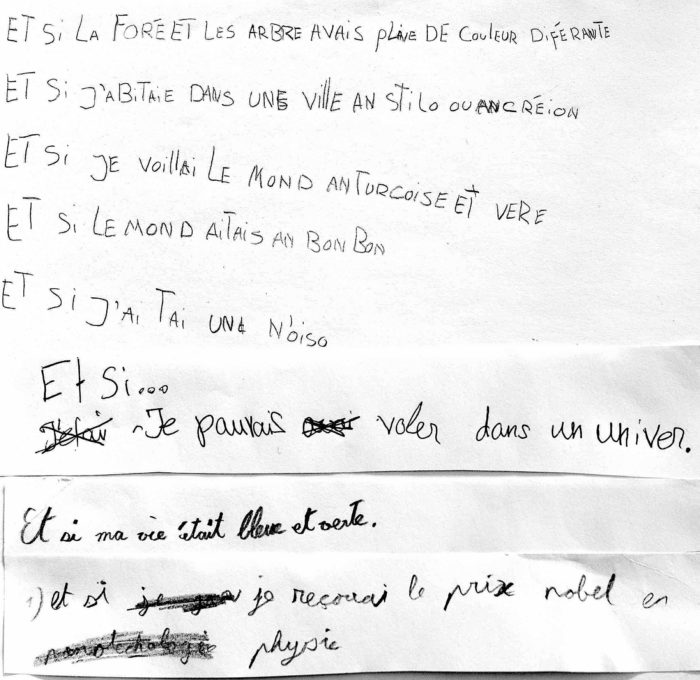 ET Si LA FORÉET LES ARBRE AVAIS PLAIVE DE COULEUR DIFÉRANTE
ET Si J'ABiTAiE DANS UNE ViLLE AN STiLO OU AN CRÉiON
ET Si JE VOiLLAi LE MOND AN TURCOiSE ET VERE
ET Si LE MOND AiTAiS AN BONBON
ET Si J'Ai TAi UNE N'OiSO
Et Si...
Je pauvais voler dans un univer.
Et si ma vie était bleue et verte.
1) et si je reçovai le prix nobel en
physic